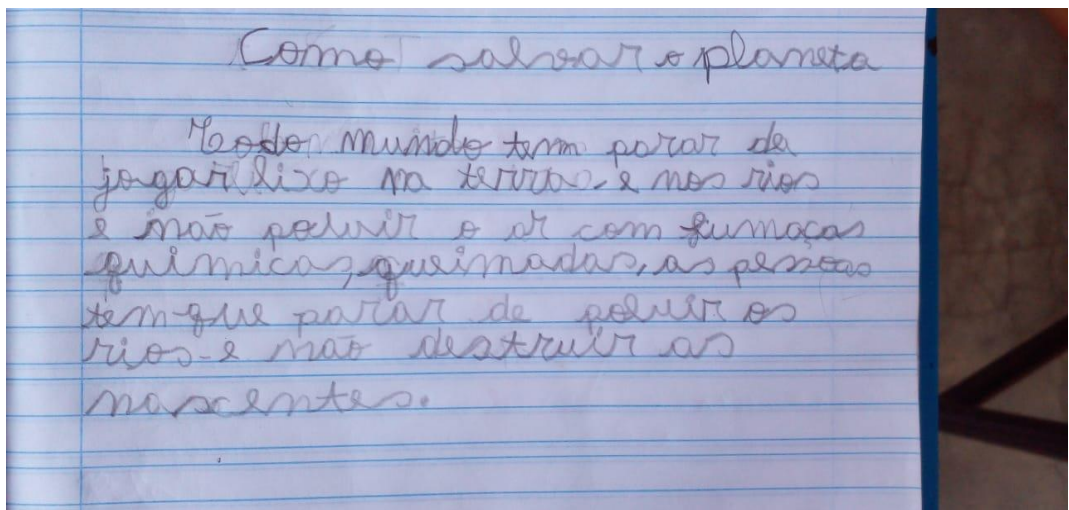 Como salvar o planeta
Todo mundo tem parar de
jogar lixo na terra, e nos rios
e não poluir o ar com fumaças
quimicas, queimadas, as pessoas
tem que parar de poluir os
rios e não destruir as
nascentes.